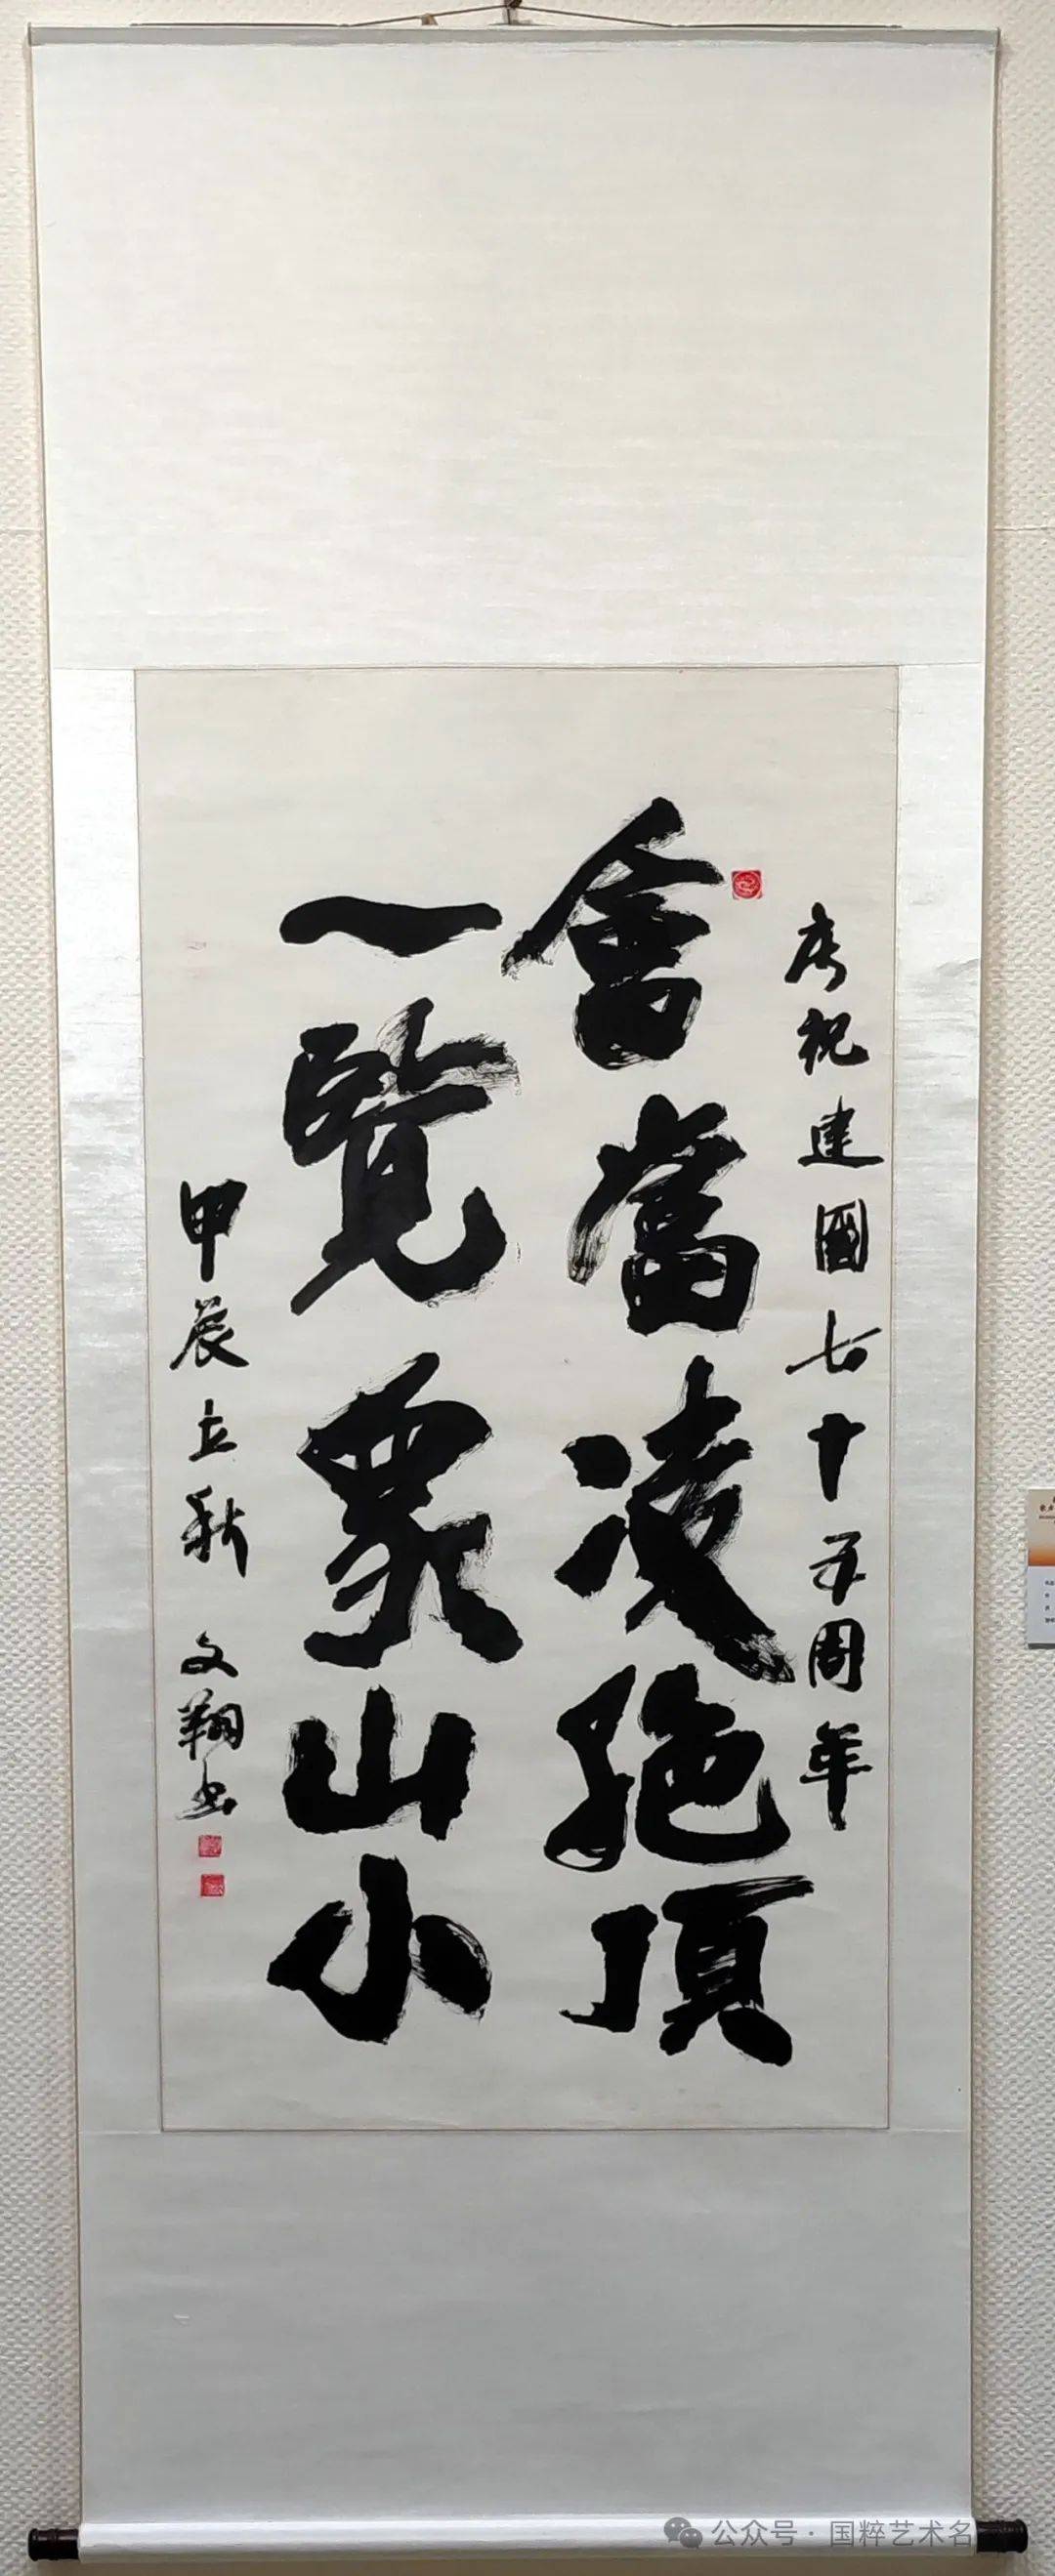 庆祝建國七十五周年
會當凌絶頂
一覽衆山小
甲辰立秋 文翔书
公众号·国粹艺术名